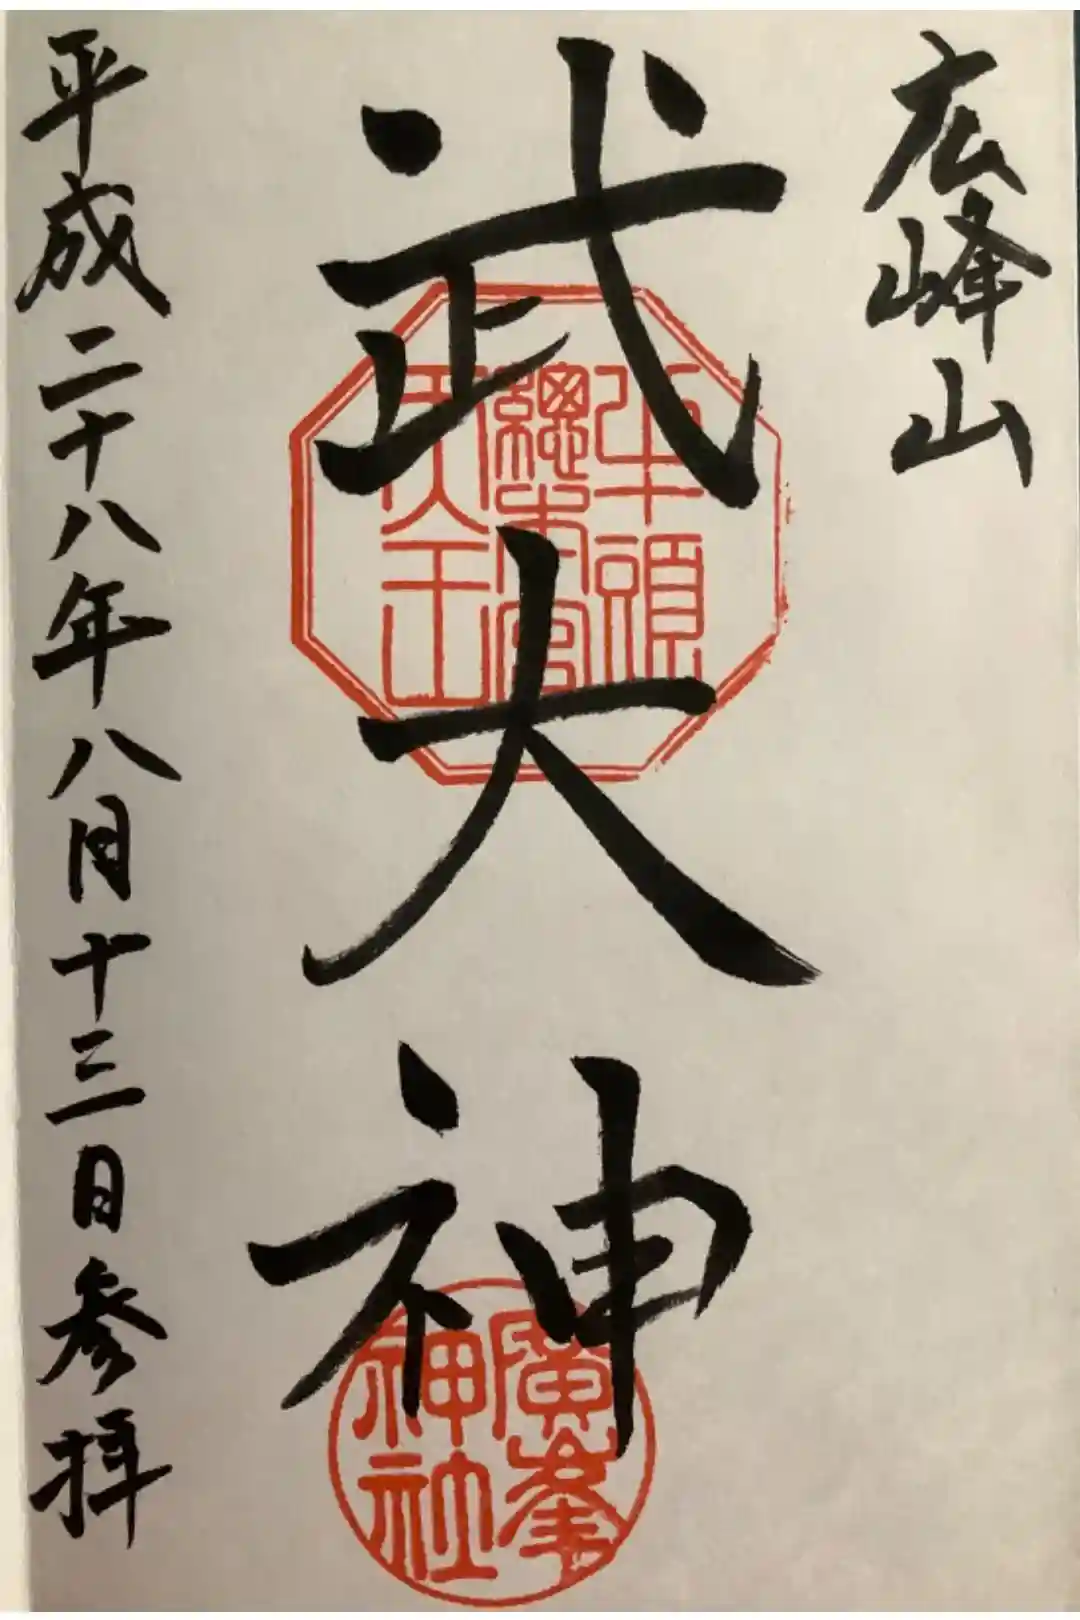 広峰山
武大神
牛頭
総本宮
天王
廣峯
神社
平成二十八年八月十三日参拝